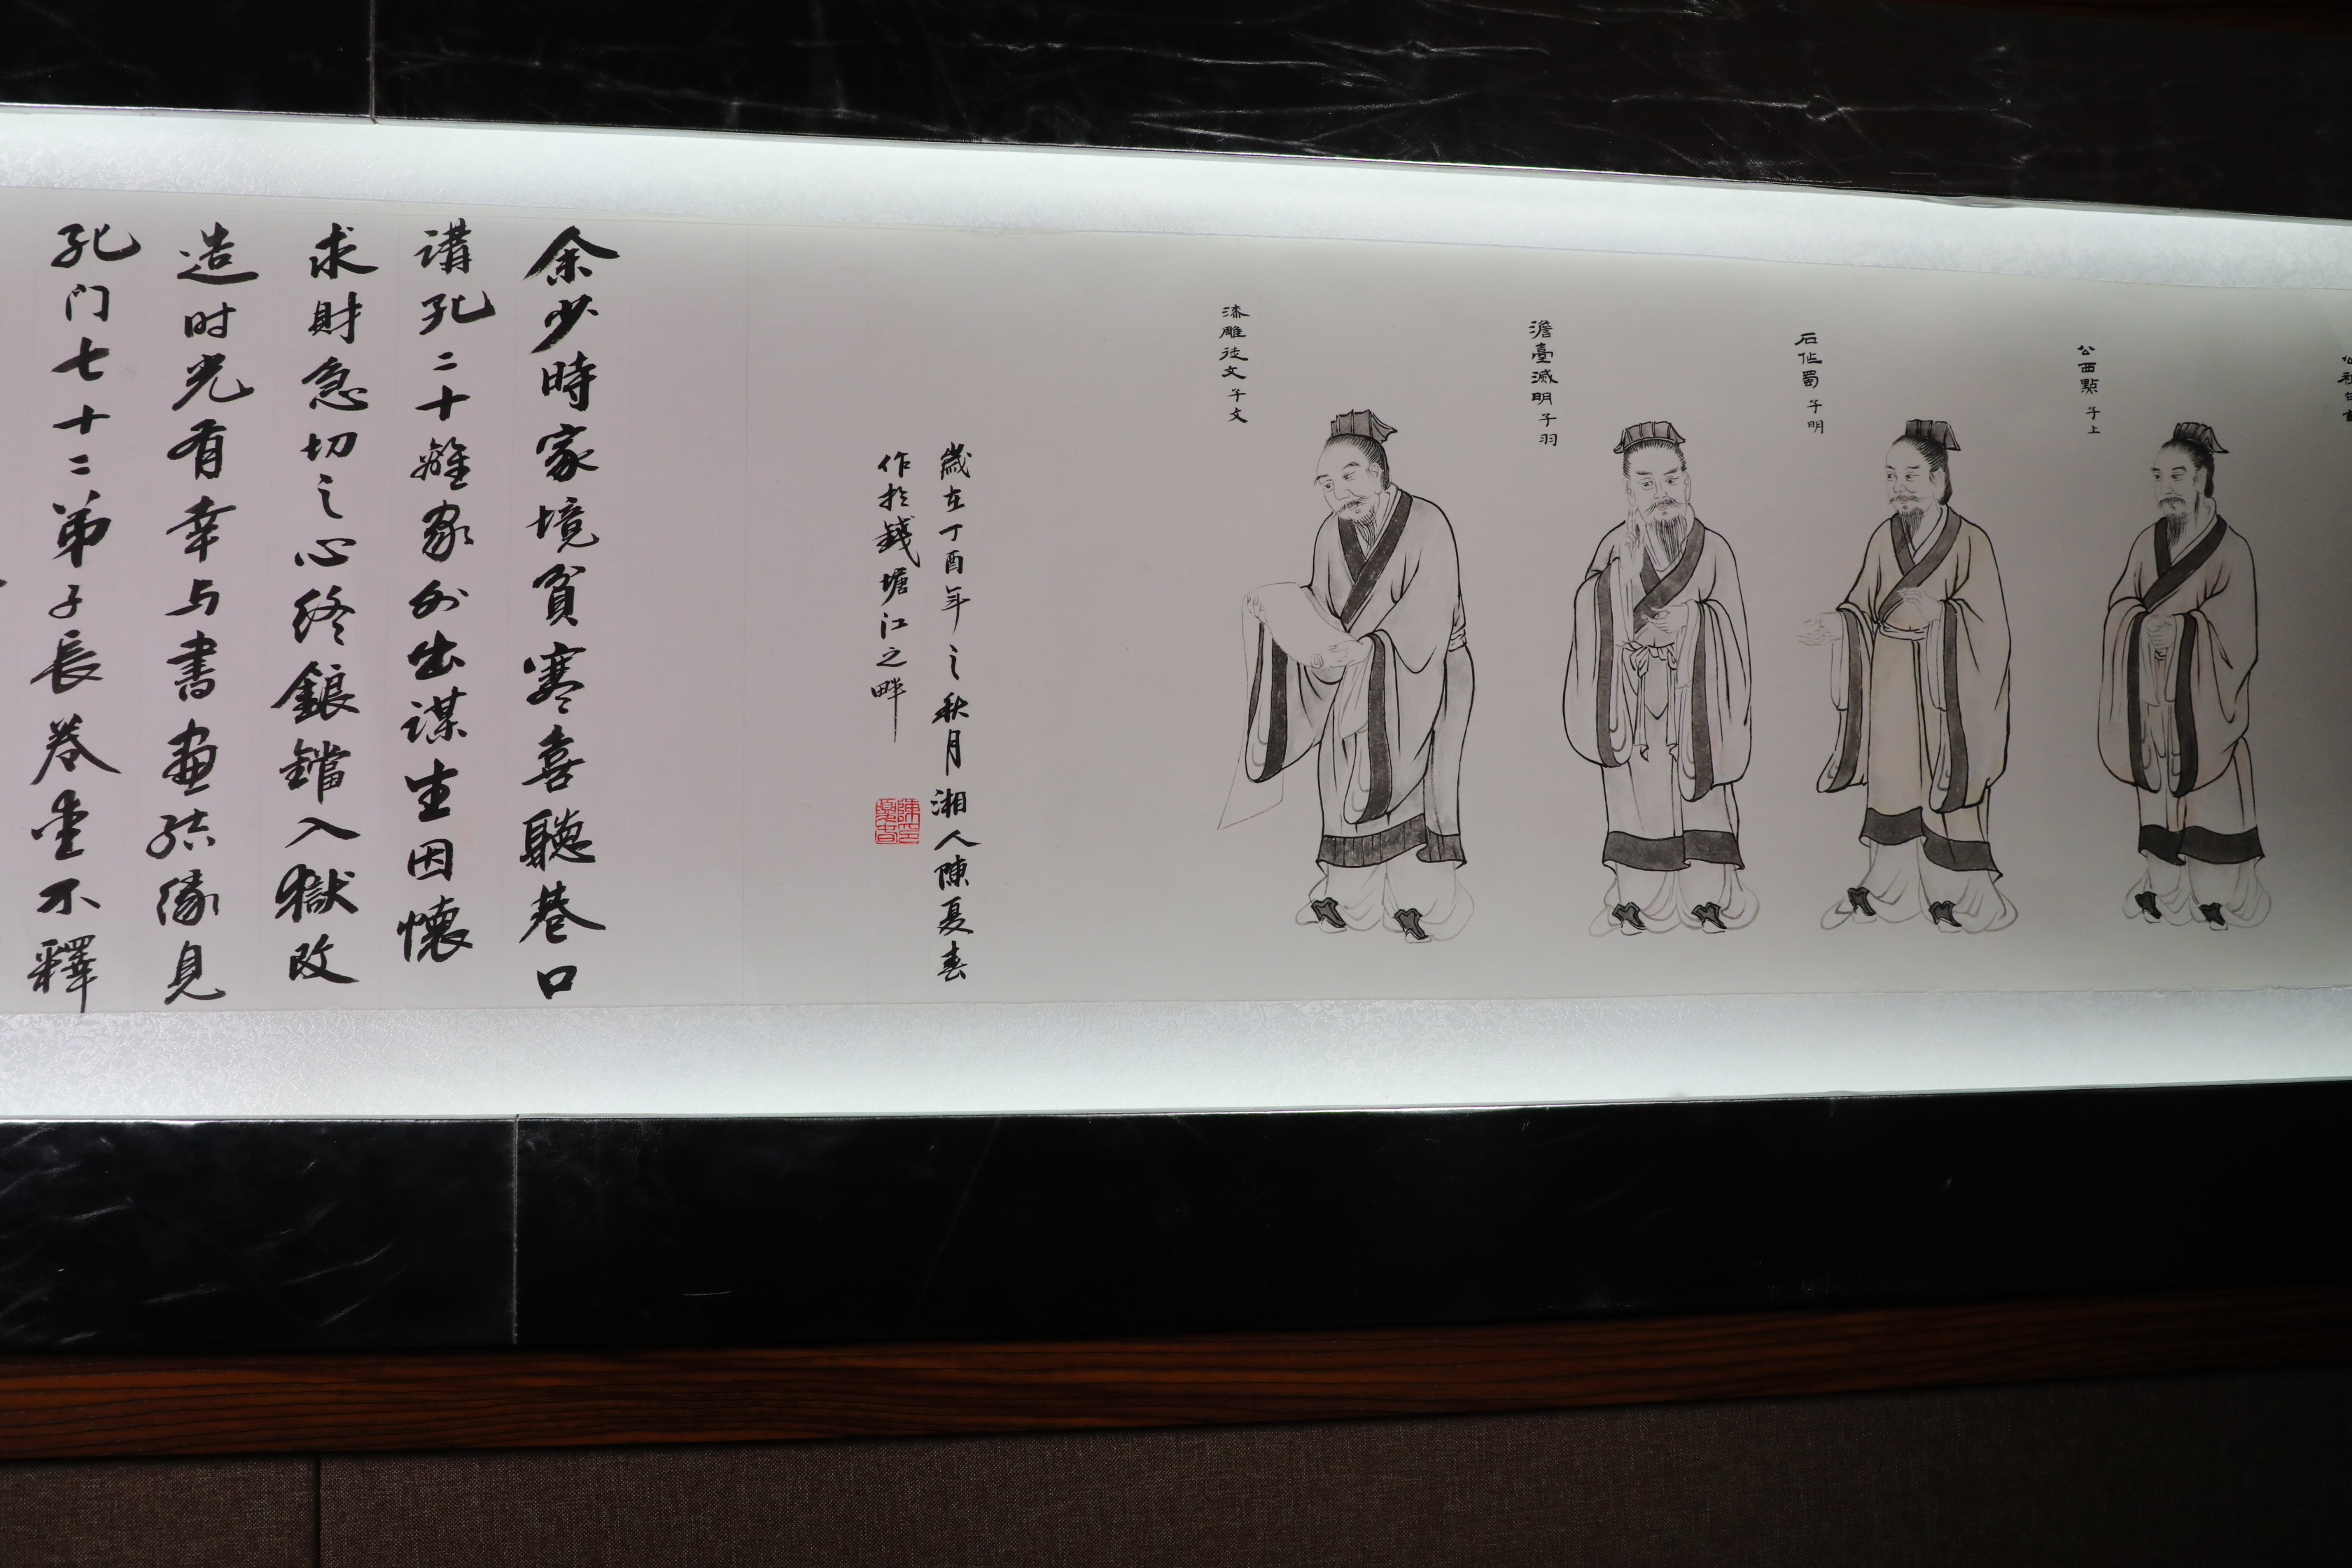 公西點 子上
石作蜀 子明
澹臺滅明 子羽
漆雕徒文 子文
歲在丁酉年之秋月湘人陳夏春
作於錢塘江之畔
余少時家境貧寒喜聽巷口
講孔二十離家外出謀生因懷
求財急切之心終鋃鐺入獄改
造时光有幸与書画结缘見
孔门七十二弟子長卷愛不釋